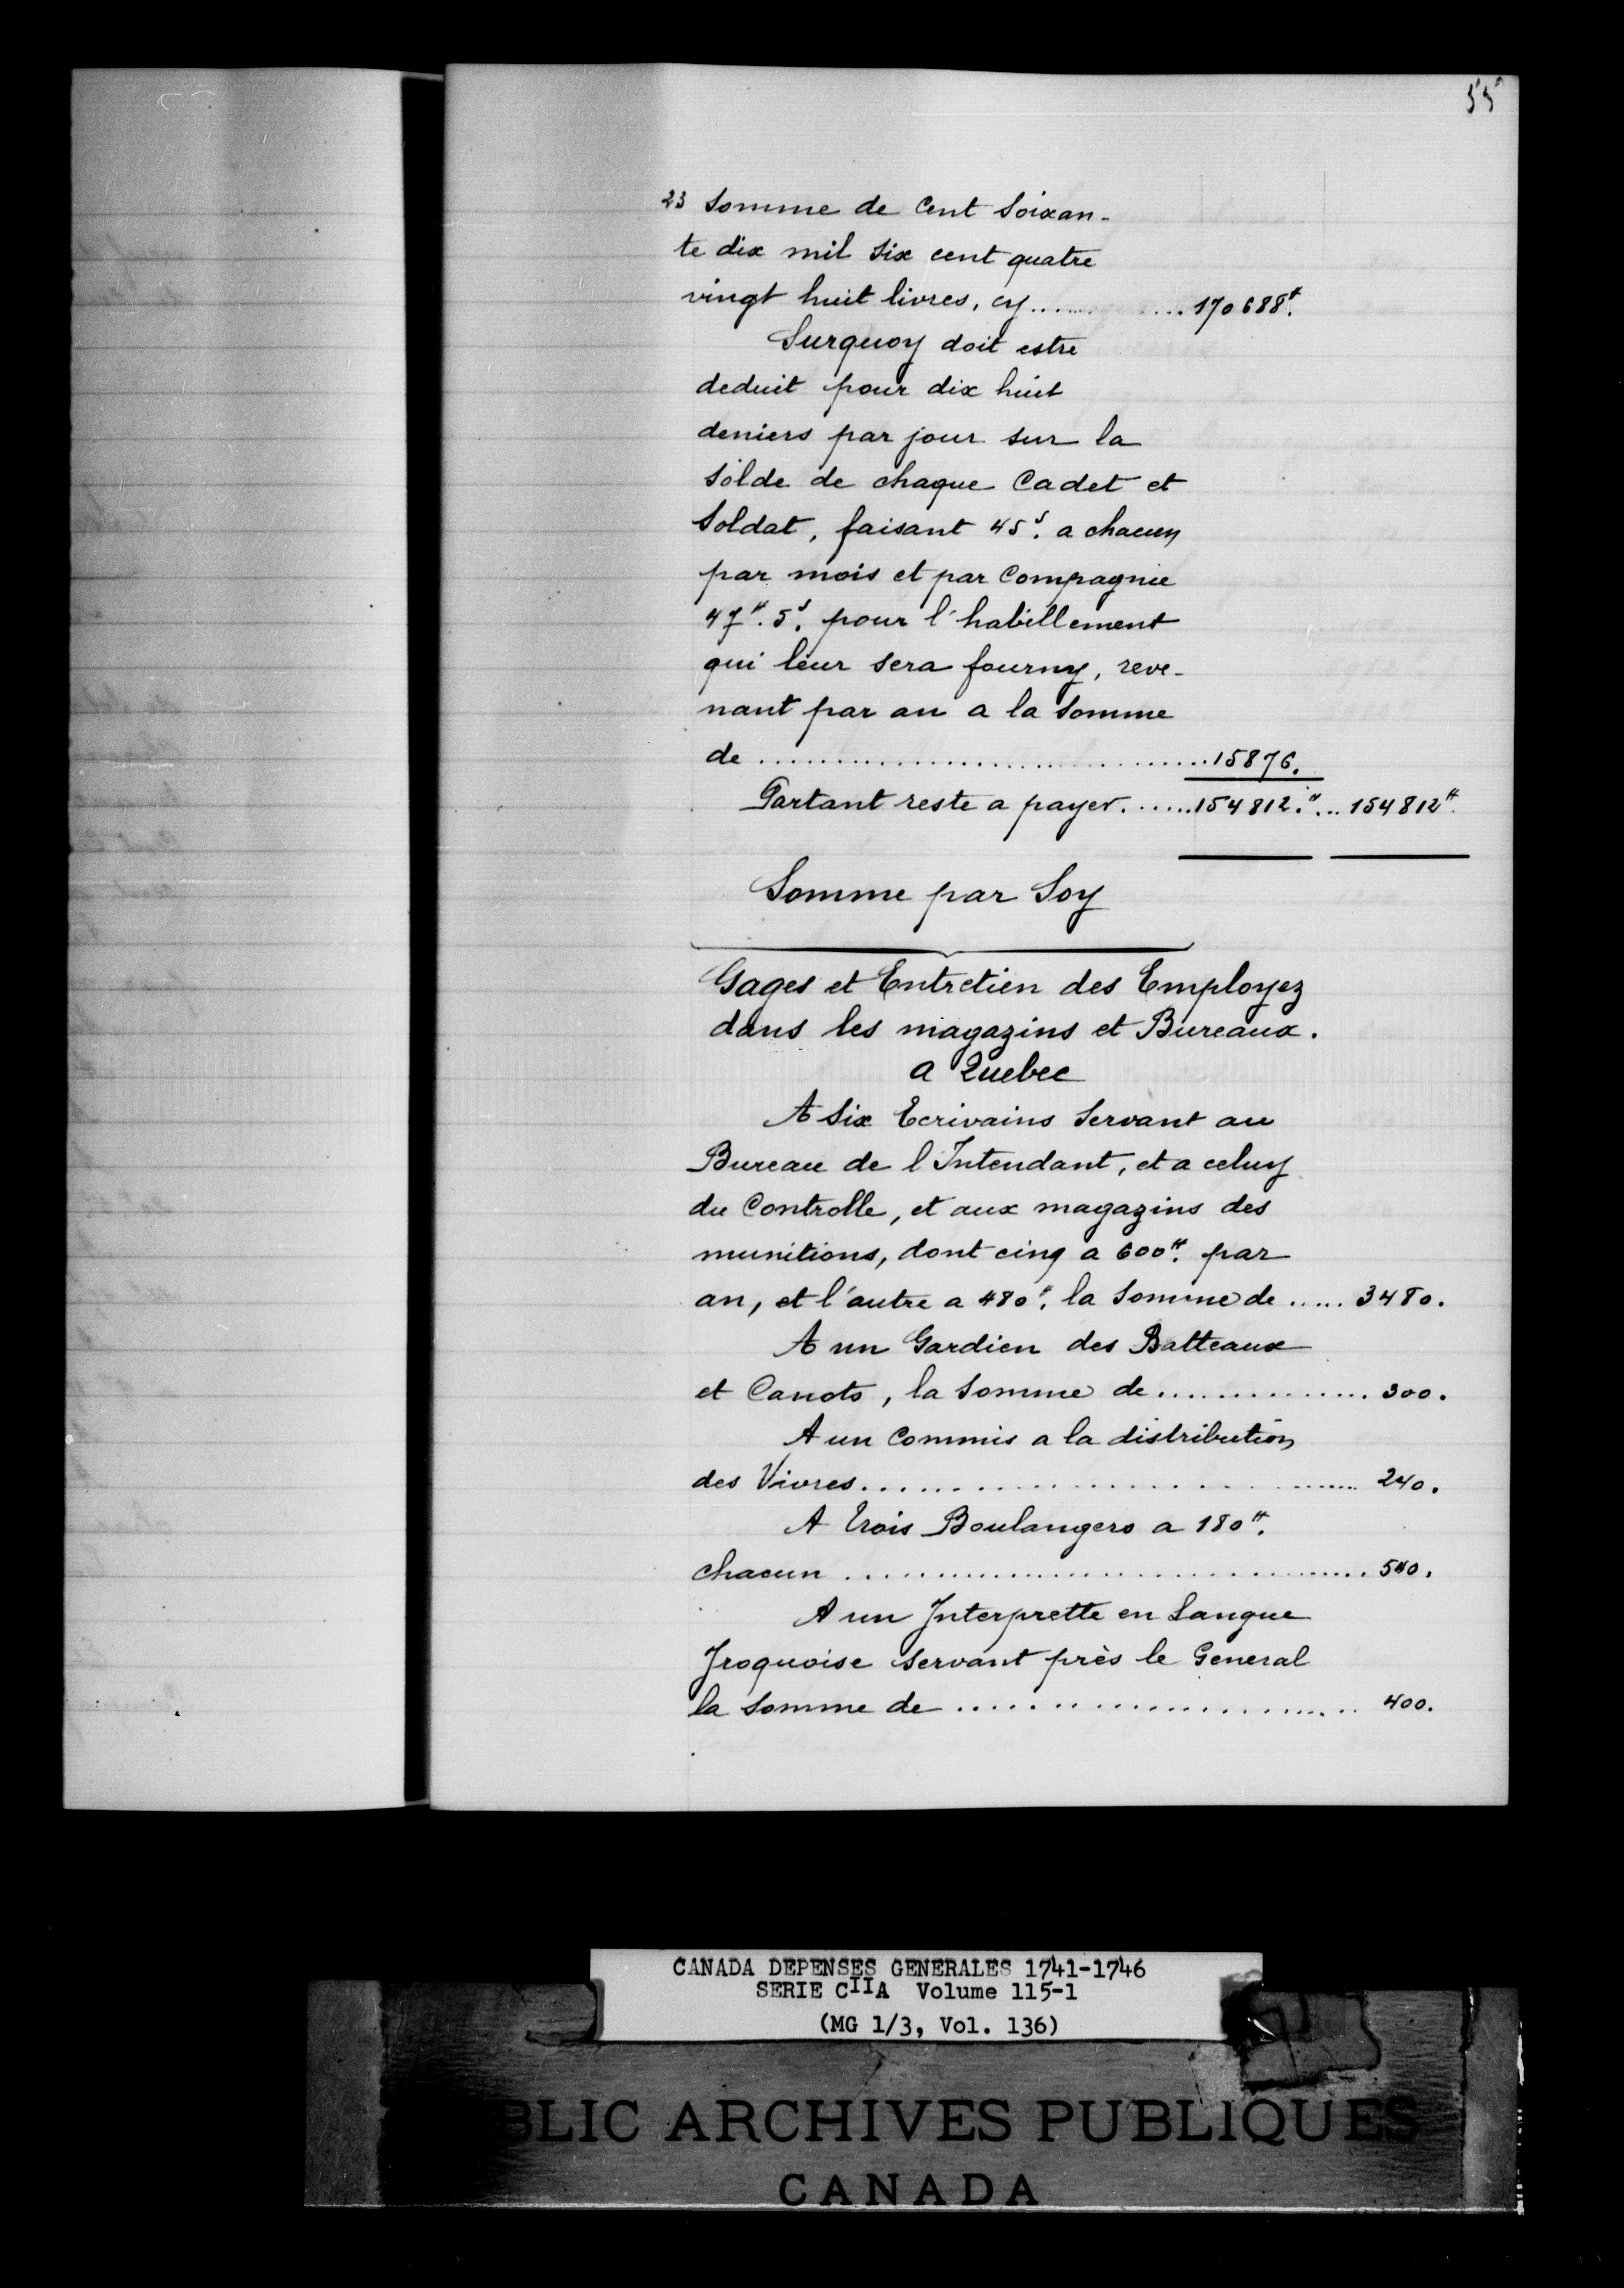 55
23 Somme de Cent Soixan-
te dix mil Six cent quatre
vingt huit livres, cy ........... 170688#.
Surquoy doit estre
deduit pour dix huit
deniers par jour sur la
Solde de chaque Cadet et
Soldat, faisant 45s. a chacun
par mois et par Compagnie
47#. 5s. pour l'habillement
qui leur sera fourny, reve-
nant par an a la Somme
de ........................... 15876.
Partant reste a payer ...... 154812.# ... 154812#.
Somme par Soy
Gages et Entretien des Employez
dans les magazins et Bureaux.
a Quebec
A Six Ecrivains Servant au
Bureau de l'Intendant, et a celuy
du Controlle, et aux magazins des
munitions, dont cinq a 600#. par
an, et l'autre a 480#. la Somme de ..... 3480.
A un Gardien des Batteaux
et Canots, la Somme de .............. 300.
A un Commis a la distribution
des Vivres ........................... 240.
A trois Boulangers a 180#.
chacun ........................... 540.
A un Interprette en Langue
Iroquoise Servant près le General
la Somme de ........................ 400.
CANADA DEPENSES GENERALES 1741-1746
SERIE CIIA Volume 115-1
(MG 1/3, Vol. 136)
BLIC ARCHIVES PUBLIQUES
CANADA